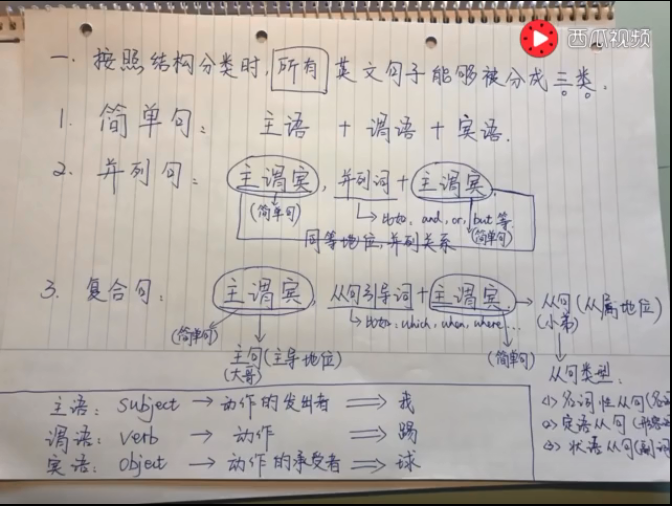 西瓜视频
一. 按照结构分类时, 所有 英文句子能够被分成三类.
1. 简单句: 主语 + 谓语 + 宾语.
2. 并列句: 主谓宾, 并列词 + 主谓宾
(简单句) 比如: and, or, but 等 (简单句)
同等地位, 并列关系
3. 复合句: 主谓宾, 从句引导词 + 主谓宾 → 从句 (从属地位)
(小弟)
(简单句) 比如: which, when, where... (简单句)
主句 (主导地位)
(大哥)
从句类型:
<1> 名词性从句(名
<2> 定语从句(形
<3> 状语从句(副词
主语: subject → 动作的发出者 ⇒ 我
谓语: verb → 动作 ⇒ 踢
宾语: object → 动作的承受者 ⇒ 球